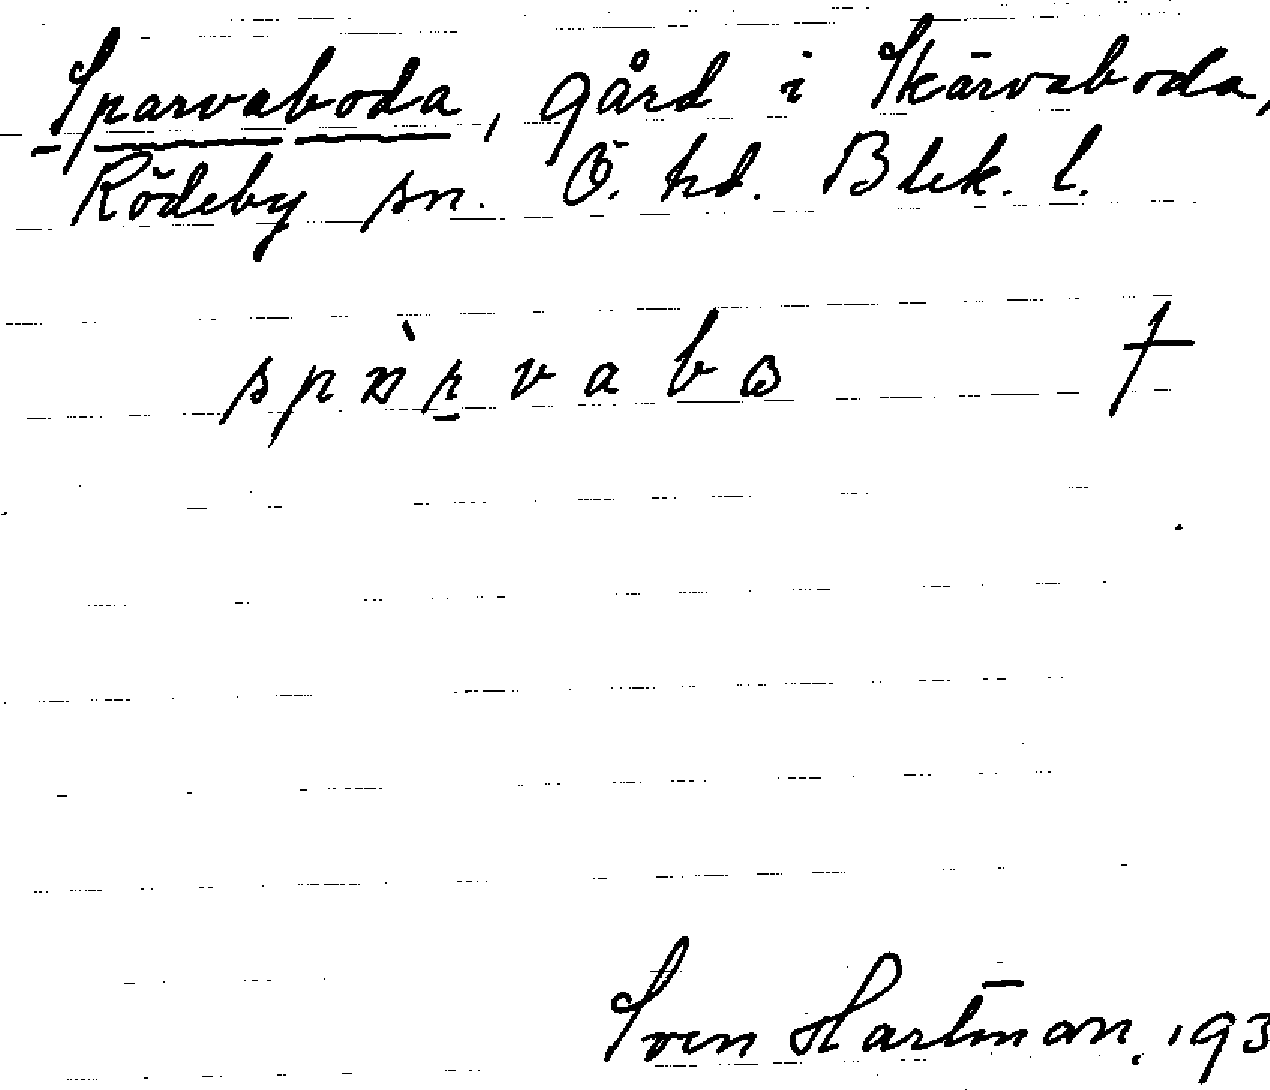 Sparvaboda, gård i Skärvaboda,
Rödeby sn. Ö. hd. Blek. l.
Sven Hartman. 193